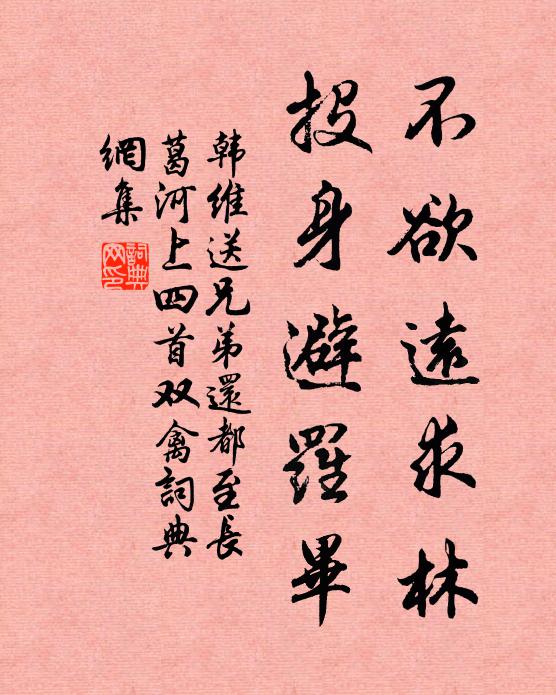 不欲遠求林
投身避羅畢
韩維送兄弟還都至長
葛河上四首双禽詞典
網集
詞典网印